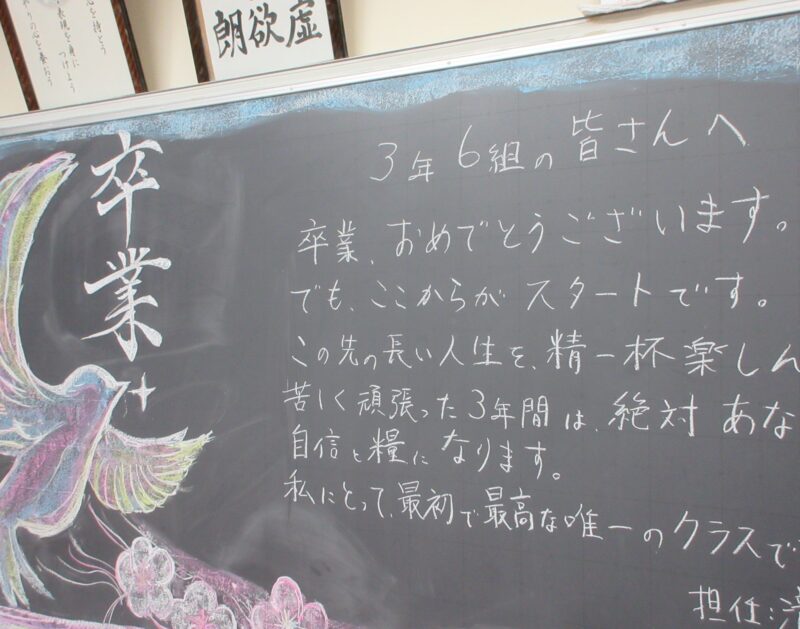 虚欲朗
卒業
3年6組の皆さんへ
卒業、おめでとうございます。
でも、ここからがスタートです。
この先の長い人生を、精一杯楽しん
苦しく頑張った3年間は、絶対あな
自信と糧になります。
私にとって、最初で最高な唯一のクラスで
担任: